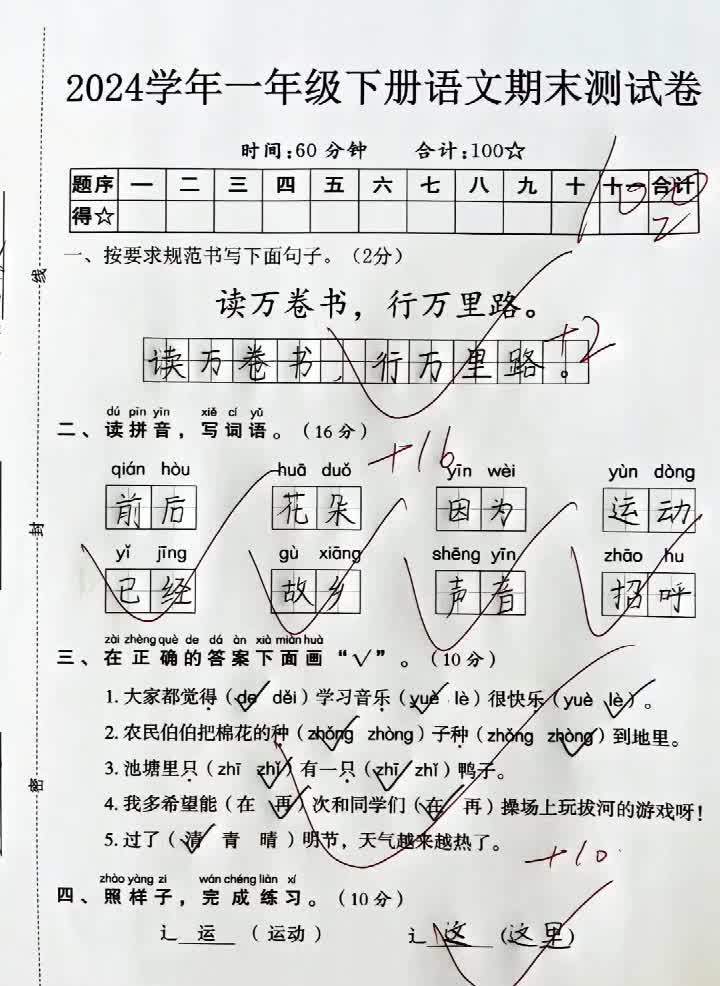 2024学年一年级下册语文期末测试卷
时间:60 分钟 合计:100☆
题序 一 二 三 四 五 六 七 八 九 十 十一 合计
得☆
100
一、按要求规范书写下面句子。（2分）
读万卷书，行万里路。
读万卷书，行万里路。
+2
dú pīn yīn xiě cí yǔ
二、读拼音，写词语。（16分）
+16
qián hòu huā duǒ yīn wèi yùn dòng
前后 花朵 因为 运动
yǐ jīng gù xiāng shēng yīn zhāo hu
已经 故乡 声音 招呼
zài zhèng què de dá àn xià miàn huà
三、在正确的答案下面画“√”。（10分）
1. 大家都觉得（de děi）学习音乐（yuè lè）很快乐（yuè lè）。
2. 农民伯伯把棉花的种（zhǒng zhòng）子种（zhǒng zhòng）到地里。
3. 池塘里只（zhī zhǐ）有一只（zhī zhǐ）鸭子。
4. 我多希望能（在 再）次和同学们（在 再）操场上玩拔河的游戏呀！
5. 过了（清 青 晴）明节，天气越来越热了。
+10
zhào yàng zi wán chéng liàn xí
四、照样子，完成练习。（10分）
辶 运 （运动） 辶 这 （这里）
线
封
密